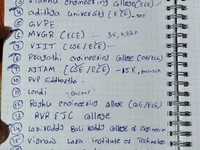 3 Vishnu engineering college (ECE)
4 aditya university (ECE)
5 GVPE
6 MVGR (ECE)
7 VIIT (CSE/ECE)
8 Pragathi engineering college (CSE/ECE)
9 AITAM (CSE/ECE)
10 PVP Siddhartha
11 Lendi
12 engineering college (CSE/ECE)
13 RVR & JC college
14 Lakireddy Bali Reddy college of engineering
15 Vignan's Lara Institute of Technology